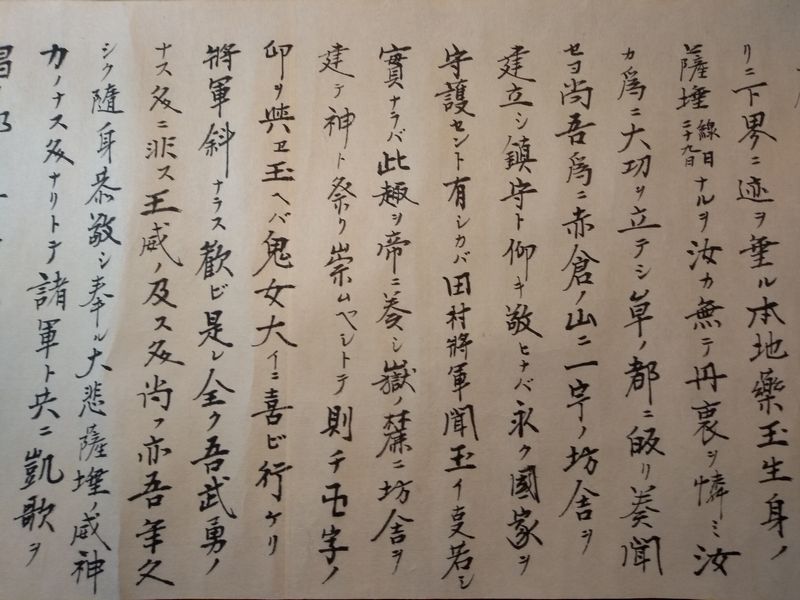 リニ下界ニ迹ヲ垂ル本地藥王生身ノ
薩埵縁日二十九日ナルヲ汝カ無テ丹裏ヲ憐ミ汝
カ爲ニ大功ヲ立テシ早ノ都ニ皈リ奏聞
セヨ尚吾爲ニ赤倉ノ山ニ一宇ノ坊舎ヲ
建立シ鎮守ト仰キ敬ヒナバ永ク國家ヲ
守護セント有シカバ田村將軍聞玉イ若シ
實ナラバ此趣ヲ帝ニ奏シ嶽ノ麓ニ坊舎ヲ
建テ神ト祭リ崇ムヘシトテ則チ宇ノ
卯ヲ與ヱ玉ヘバ鬼女大イニ喜ビ行ケリ
將軍斜ナラス歡ビ是レ全ク吾武勇ノ
ナス処ニ非ス王威ノ及ス処尚ヲ亦吾年久
シク隨身恭敬シ奉ル大悲薩埵ノ威神
力ノナス処ナリトテ諸軍ト共ニ凱歌ヲ